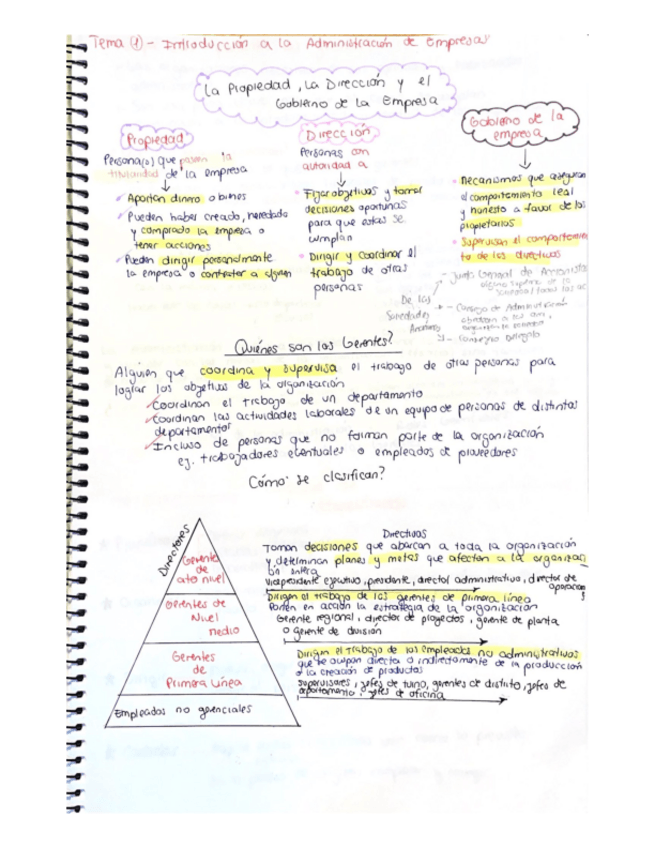 Tema ① - Introducción a la Administración de Empresas
La Propiedad, La Dirección y el
Gobierno de la Empresa
Propiedad
Persona(s) que poseen la
titularidad de la empresa
Aportan dinero o bienes
Pueden haber creado, heredado
y comprado la empresa o
tener acciones
Pueden dirigir personalmente
la empresa o contratar a alguien
Dirección
Personas con
autoridad a
Fijar objetivos y tomar
decisiones oportunas
para que estas se
cumplan
Dirigir y coordinar el
trabajo de otras
personas
Gobierno de la
empresa
Mecanismos que aseguran
el comportamiento leal
y honesto a favor de los
propietarios
Supervisan el comportamien
to de los directivos
De las
Sociedades
Junta General de Accionista
- Consejo de Administración
- Consejero Delegado
¿Quiénes son los Gerentes?
Alguien que coordina y supervisa el trabajo de otras personas para
lograr los objetivos de la organización
Coordinan el trabajo de un departamento
Coordinan las actividades laborales de un equipo de personas de distintos
departamentos
Incluso de personas que no forman parte de la organización
ej. trabajadores eventuales o empleados de proveedores
¿Cómo se clasifican?
Directores
Gerente
de
alto nivel
Gerentes de
Nivel
medio
Gerentes
de
Primera Línea
Empleados no gerenciales
Directivos
Toman decisiones que abarcan a toda la organización
y determinan planes y metas que afectan a la organizac
ión entera
Vicepresidente ejecutivo, presidente, director administrativo, director de
operacion
Dirigen el trabajo de los gerentes de primera línea
Ponen en acción la estrategia de la organización
Gerente regional, director de proyectos, gerente de planta
o gerente de división
Dirigen el trabajo de los empleados no administrativos
que se ocupan directa o indirectamente de la producción
o la creación de productos
Supervisores, jefes de turno, gerentes de distrito, jefes de
departamento, jefes de oficina